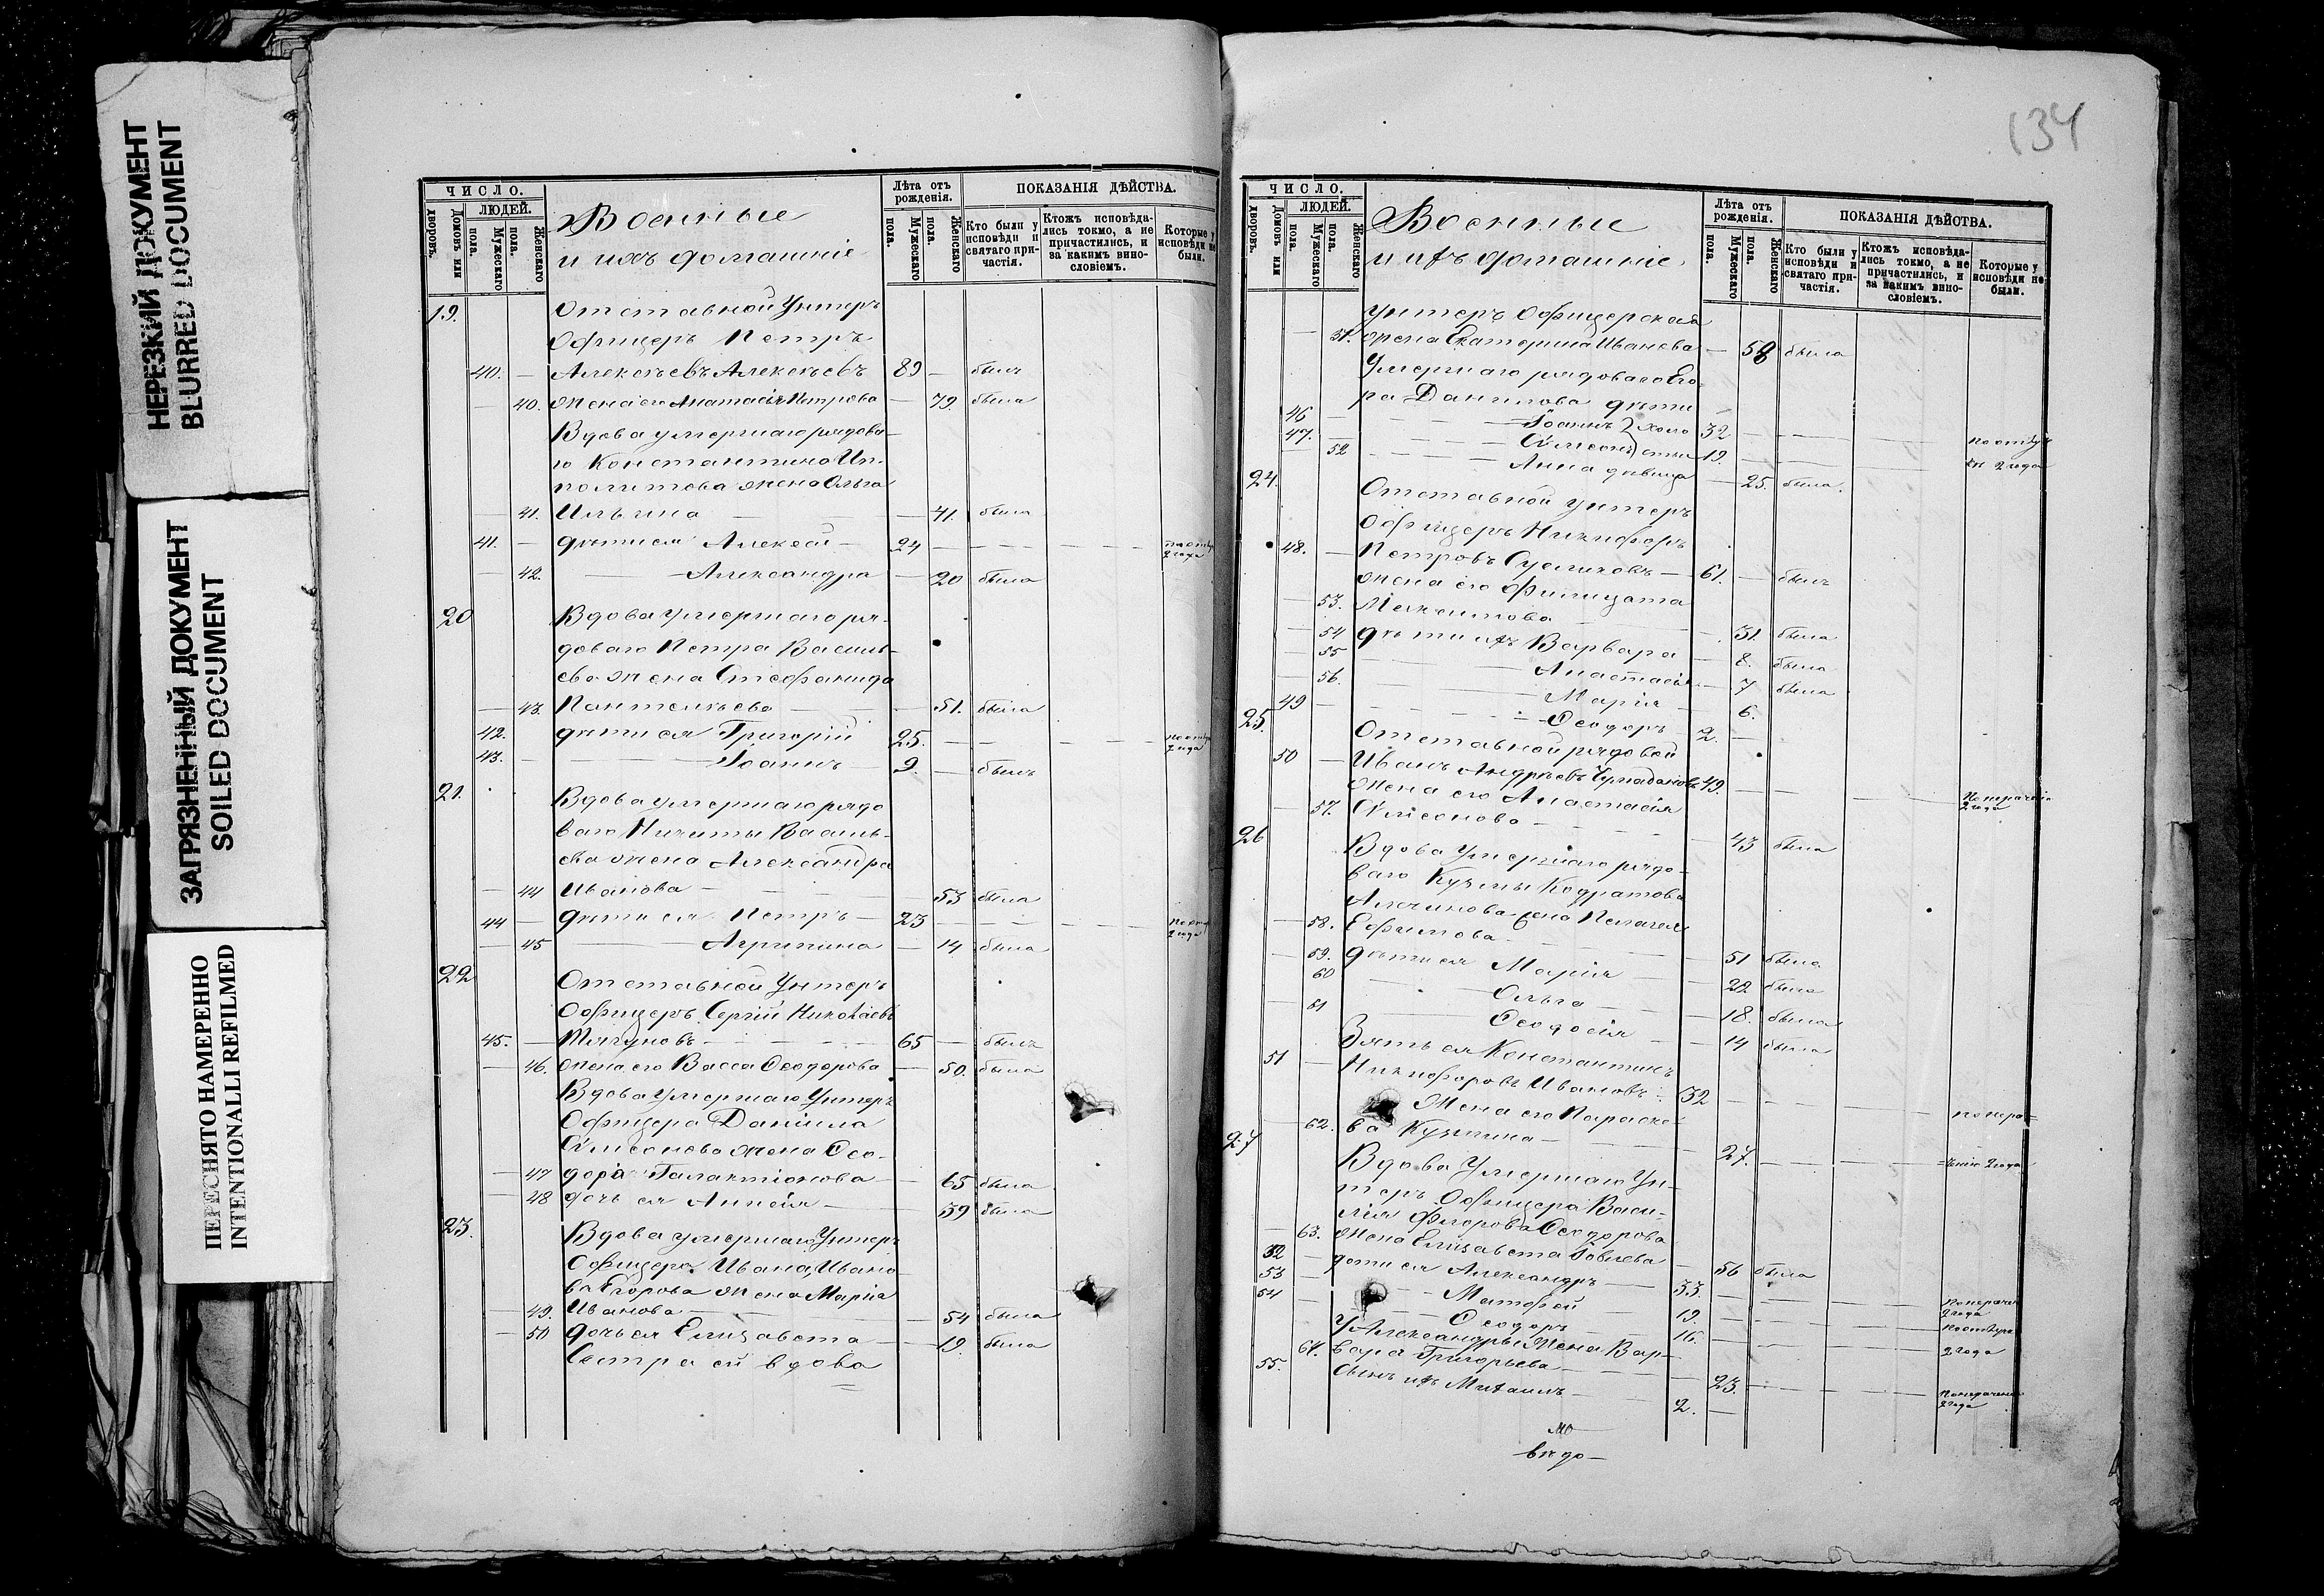 НЕРЕЗКИЙ ДОКУМЕНТ
BLURRED DOCUMENT
ЗАГРЯЗНЕННЫЙ ДОКУМЕНТ
SOILED DOCUMENT
ПЕРЕСНЯТО НАМЕРЕННО
INTENTIONALLI REFILMED
ЧИСЛО.
ЛЮДЕЙ.
Домовъ или дворовъ.
Мужескаго пола.
Женскаго пола.
Военные
и ихъ домашніе
Лѣта отъ рожденія.
Мужескаго пола.
Женскаго пола.
ПОКАЗАНІЯ ДѢЙСТВА.
Кто были у исповѣди и святаго причастія.
Ктожъ исповѣдались токмо, а не причастились, и за какимъ винословіемъ.
Которые у исповѣди не были.
19. Отставной Унтеръ
Офицеръ Петръ
40. — Алексѣевъ Алексѣевъ 89 — былъ
— 40. жена его Анастасія Петрова — 79. была
Вдова умершаго рядова-
го Константина Ип-
политова жена Ольга
— 41. Ильина — 41. была
41. — дѣти ея Алексѣй — 24 — — 2 года
— 42. — Александра — 20 была
20 Вдова умершаго ря-
доваго Петра Василь-
ева жена Стефанида
— 43. Пантелѣева — 51. была
42. дѣти ея Григорій 25. — — 2 года
43. — Іоаннъ — 9. — былъ
21. Вдова умершаго рядо
ваго Никиты Василь-
ева жена Александра
— 44 Иванова — 53 была
44 — дѣти ея Петръ — 23 — — 2 года
— 45 — Агрипина — 14. была
22 Отставной Унтеръ
Офицеръ Сергій Николаевъ
45. — Тягуновъ — 65 — былъ
— 46. жена его Васса Ѳеодорова — 50. была
Вдова умершаго Унтеръ
Офицера Даніила
Симеонова жена Ѳео-
— 47 дора Галактіонова — 65 была
— 48 дочь ея Анисія — 39 была
23. Вдова умершаго Унтеръ
Офицера Ивана Ивано
ва Егорова жена Марія
— 49. Иванова — 54 была
— 50 дочь ея Елизавета — 19. была
Сестра ей вдова
134
ЧИСЛО.
ЛЮДЕЙ.
Домовъ или дворовъ.
Мужескаго пола.
Женскаго пола.
Военные
и ихъ домашніе
Лѣта отъ рожденія.
Мужескаго пола.
Женскаго пола.
ПОКАЗАНІЯ ДѢЙСТВА.
Кто были у исповѣди и святаго причастія.
Ктожъ исповѣдались токмо, а не причастились, и за какимъ винословіемъ.
Которые у исповѣди не были.
Унтеръ Офицерская
— 51. жена Екатерина Иванова — 58 была
Умершаго рядоваго Его-
ра Данилова дѣти
46 — Іоаннъ } холо 32
47. — Симеонъ } сты 19. — по отлуч
— 52 — Анна дѣвица — 25. была. 2 года
24. Отставной Унтеръ
Офицеръ Никифоръ
48. — Петровъ — 61. — былъ
жена его Филицата
— 53. Максимова — 31. была
— 54 дѣти ихъ Варвара — 8. была
— 55 — Анастасія — 7 была
— 56. — Марія — 6.
49 — Ѳеодоръ 2. —
25. Отставной рядовой
50 — Иванъ Андреевъ 49. — по нераченію 2 года
жена его Анастасія
— 57. Симеонова — 43 была
26 Вдова умершаго рядо-
ваго Кузмы Кодратова
жена Пелагея
— 58. Ефимова — 51 была
— 59. дѣти ея Марія — 22 была
60 — Ольга — 18. была
— 61 — Ѳеодосія — 14 была
Зять ея Константинъ
51 — Никифоровъ Ивановъ 32 — по нера-
Жена его Параске-
— 62. ва Кузмина — 27. — =ченію 2 года
27 Вдова умершаго Ун-
теръ Офицера Васи-
лія Флорова Ѳеодорова
— 63. жена Елизавета Іовлева — 56 была
52 — дѣти ея Александръ — 33 — по нерачен 2 года
53 — Матѳей 19. — по отлуч
54 — Ѳеодоръ 16. — 2 года
У Александра Жена Вар-
— 64. вара Григорьева — 23. — по нерачен 2 года
55. сынъ ихъ Михаилъ — 2. —